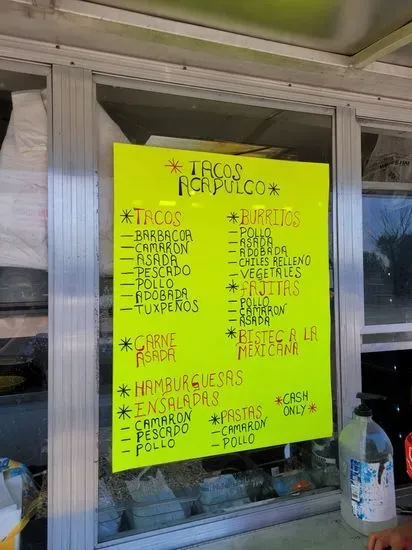 * TACOS
ACAPULCO *
* TACOS
– BARBACOA
– CAMARON
– ASADA
– PESCADO
– POLLO
– ADOBADA
– TUXPEÑOS
* CARNE
ASADA
* BURRITOS
– POLLO
– ASADA
– ADOBADA
– CHILES RELLENO
– VEGETALES
* FAJITAS
– POLLO
– CAMARON
– ASADA
* BISTEC A LA
MEXICANA
* HAMBURGUESAS
* ENSALADAS
– CAMARON
– PESCADO
– POLLO
* PASTAS
– CAMARON
– POLLO
* CASH
ONLY *